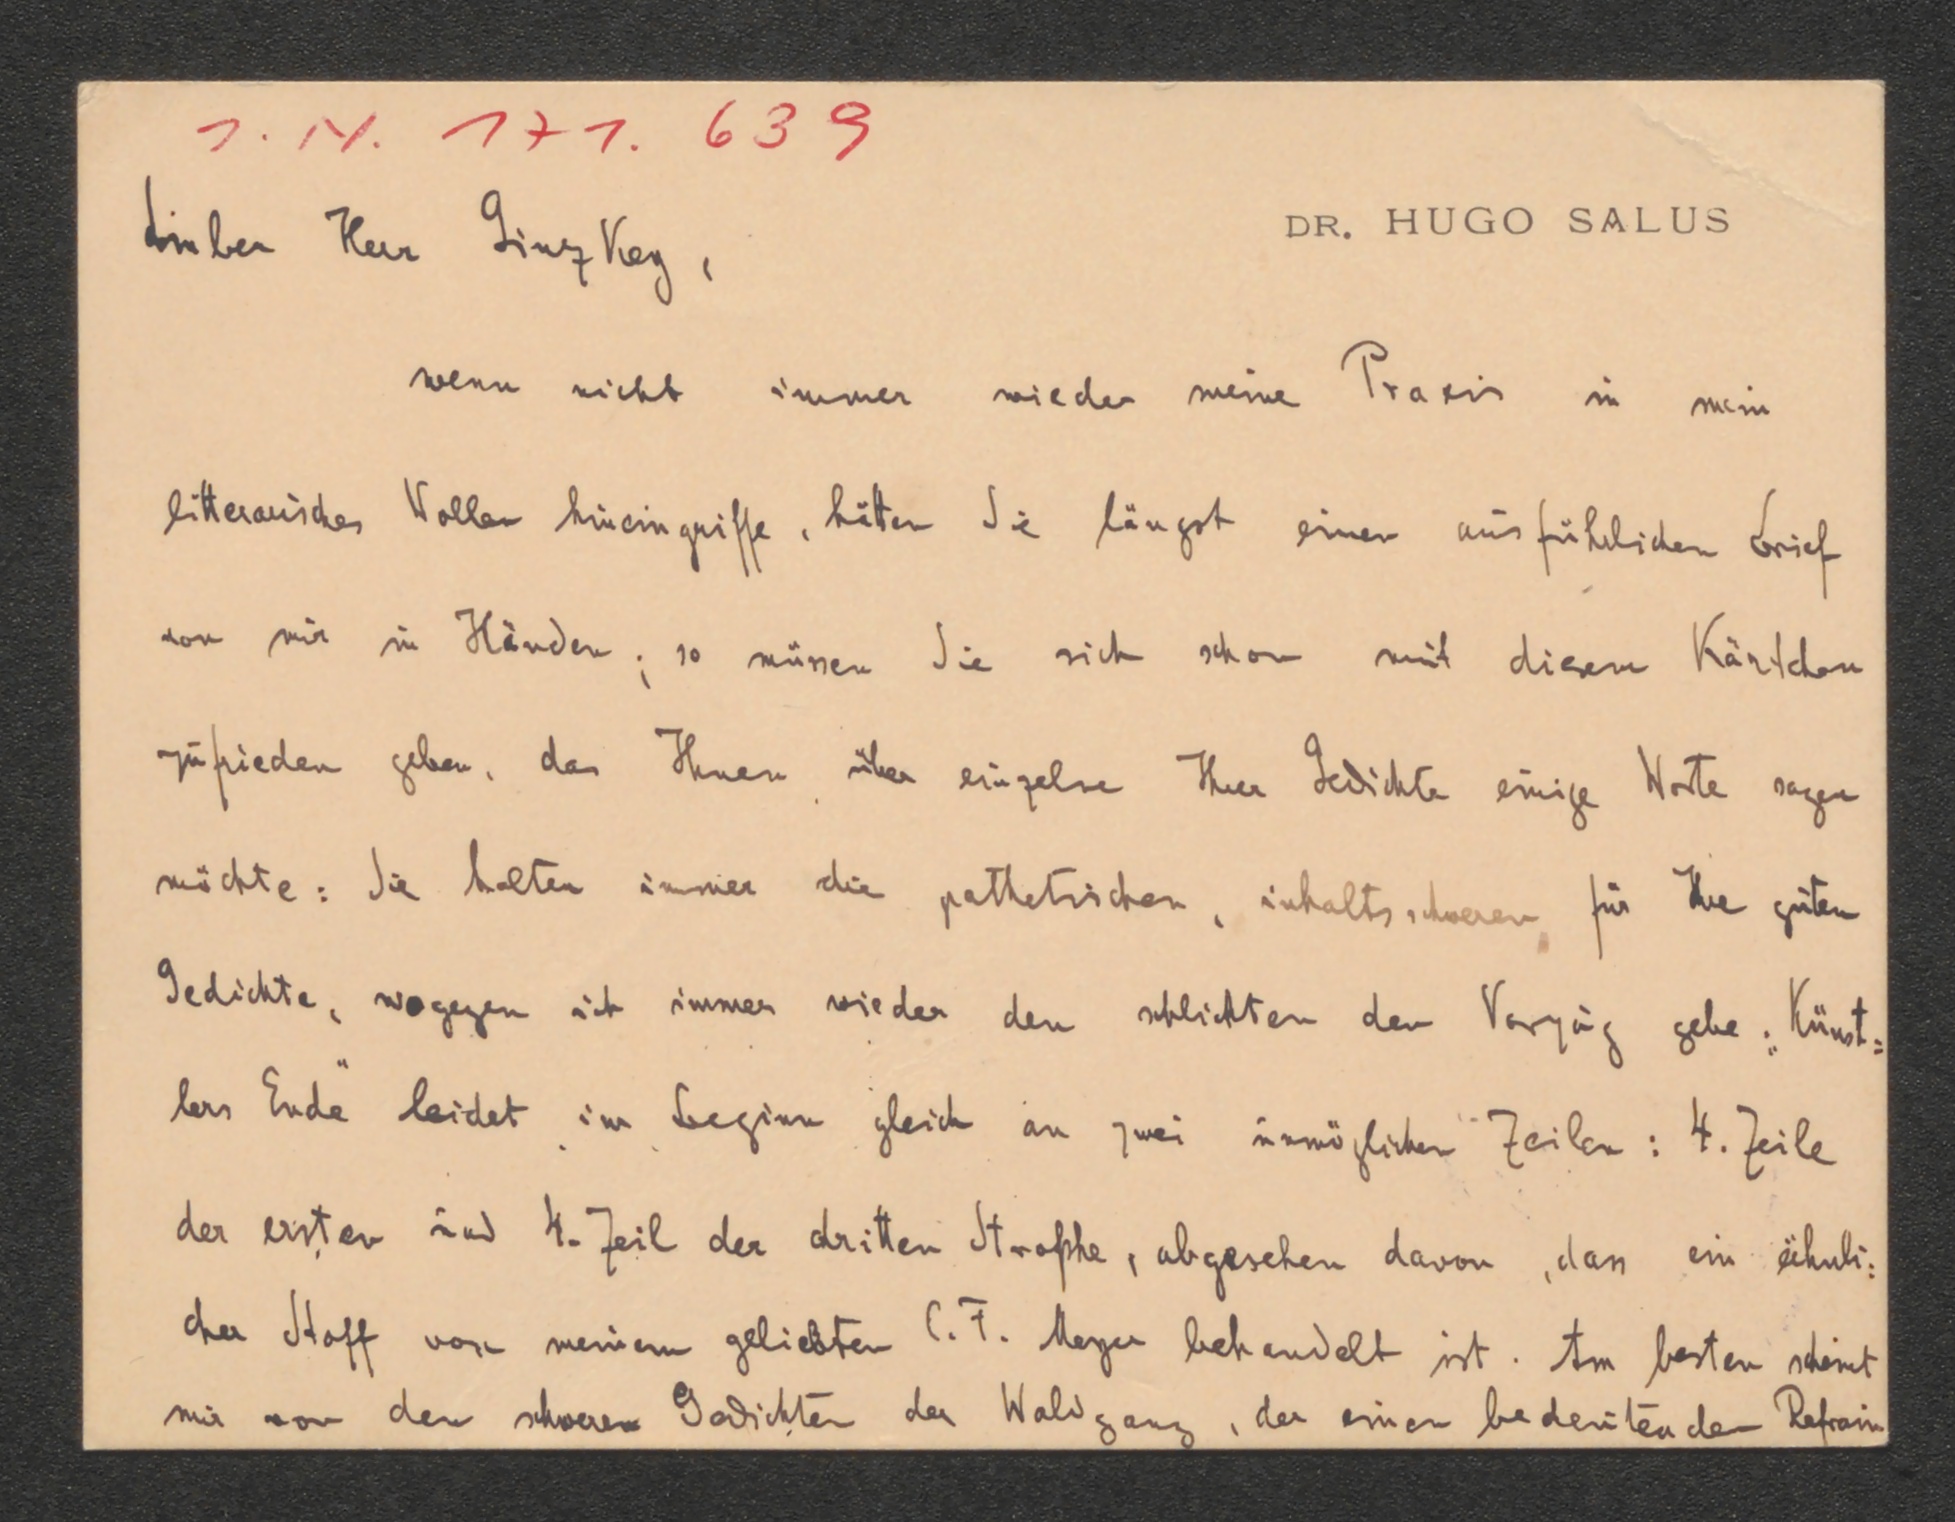 I. N. 171. 639
DR. HUGO SALUS
Lieber Herr Ginzkey,
wenn nicht immer wieder meine Praxis in mein
litterarisches Wollen hineingriffe, hätten Sie längst einen ausführlichen Brief
von mir in Händen; so müssen Sie sich schon mit diesem Kärtchen
zufrieden geben, das Ihnen über einzelne Ihrer Gedichte einige Worte sagen
möchte: Sie halten immer die pathetischen, inhaltsschweren für Ihre guten
Gedichte, wogegen ich immer wieder den schlichten den Vorzug gebe: „Künst=
lers Ende" leidet im Beginn gleich an zwei unmöglichen Zeilen: 4. Zeile
der ersten und 4. Zeil der dritten Strophe, abgesehen davon, dass ein ähnli=
cher Stoff von meinem geliebten C. F. Meyer behandelt ist. Am besten scheint
mir von den schweren Gedichten der Waldgang, der einen bedeutenden Refrain